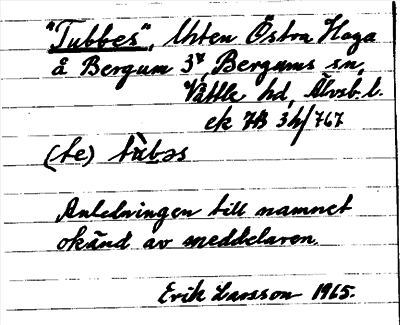 "Tubbes", Urten Östra Haga
å Bergum 3⁴, Bergums sn,
Vättle hd, Älvsb. l.
ek 7B 3h/767
(te) tùbəs
Anledningen till namnet
okänd av meddelaren.
Erik Larsson 1965.